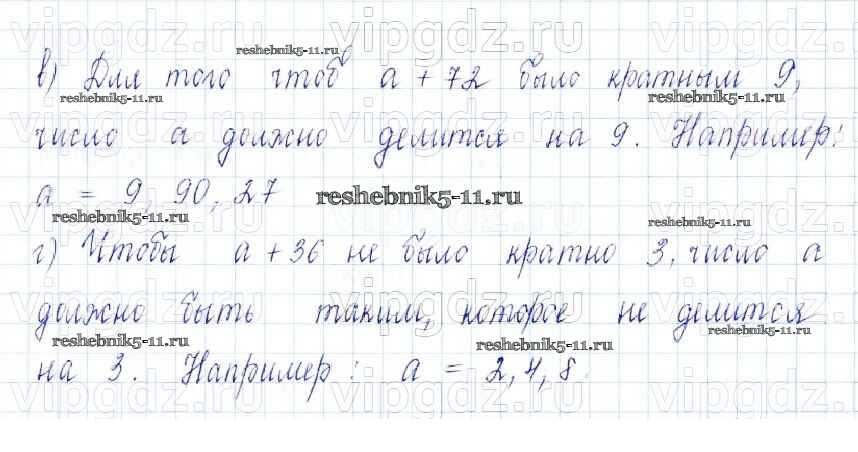 vipgdz vipgdz vipgdz vipgdz
reshebnik5-11.ru
в) Для того чтоб a + 72 было кратным 9,
reshebnik5-11.ru reshebnik5-11.ru
vipgdz vipgdz vipgdz vipgdz
число a должно делится на 9. Например:
a = 9, 90, 27
reshebnik5-11.ru
vipgdz vipgdz vipgdz vipgdz
reshebnik5-11.ru reshebnik5-11.ru
г) Чтобы a + 36 не было кратно 3, число a
vipgdz vipgdz vipgdz vipgdz
должно быть таким, которое не делится
reshebnik5-11.ru reshebnik5-11.ru reshebnik5-11.ru
на 3. Например: a = 2, 4, 8.
vipgdz vipgdz vipgdz vipgdz